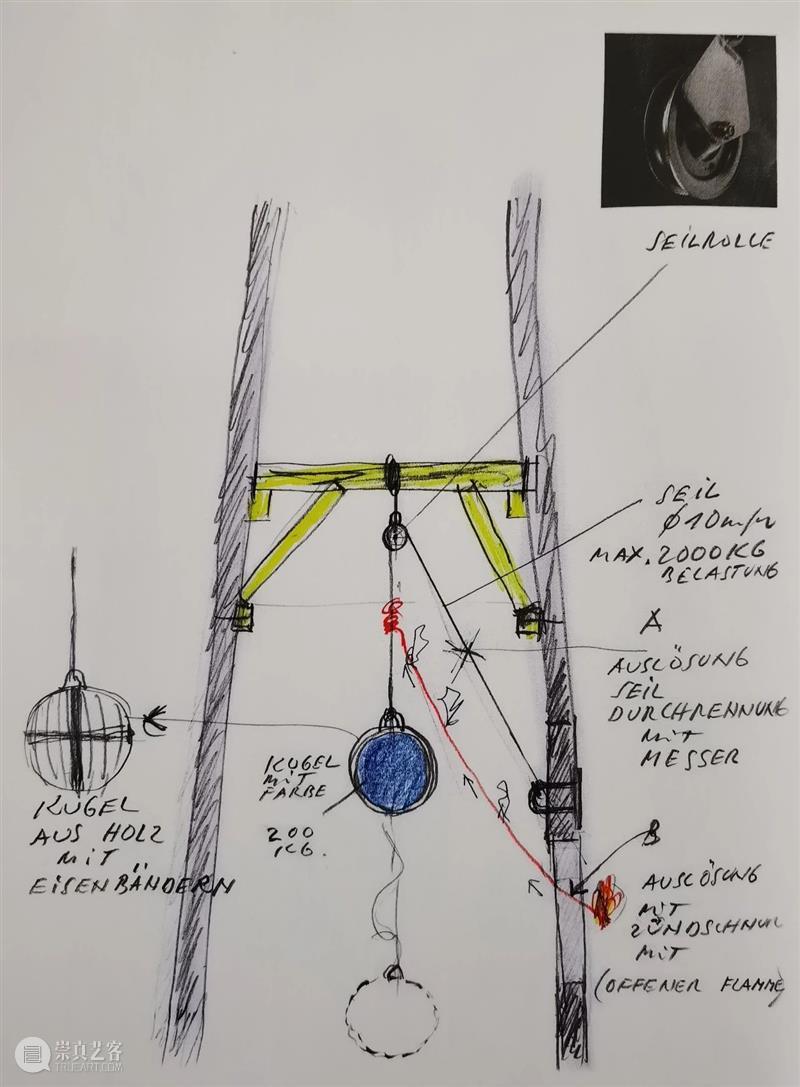 SEILROLLE
SEIL
Ø10m/m
MAX. 2000KG
BELASTUNG
A
AUSLÖSUNG
SEIL
DURCHRENNUNG
MIT
MESSER
KUGEL
MIT
FARBE
200
KG.
KUGEL
AUS HOLZ
MIT
EISENBÄNDERN
B
AUSLÖSUNG
MIT
ZÜNDSCHNUR
MIT
(OFFENER FLAMME)
崇真艺客
TRUEART.COM